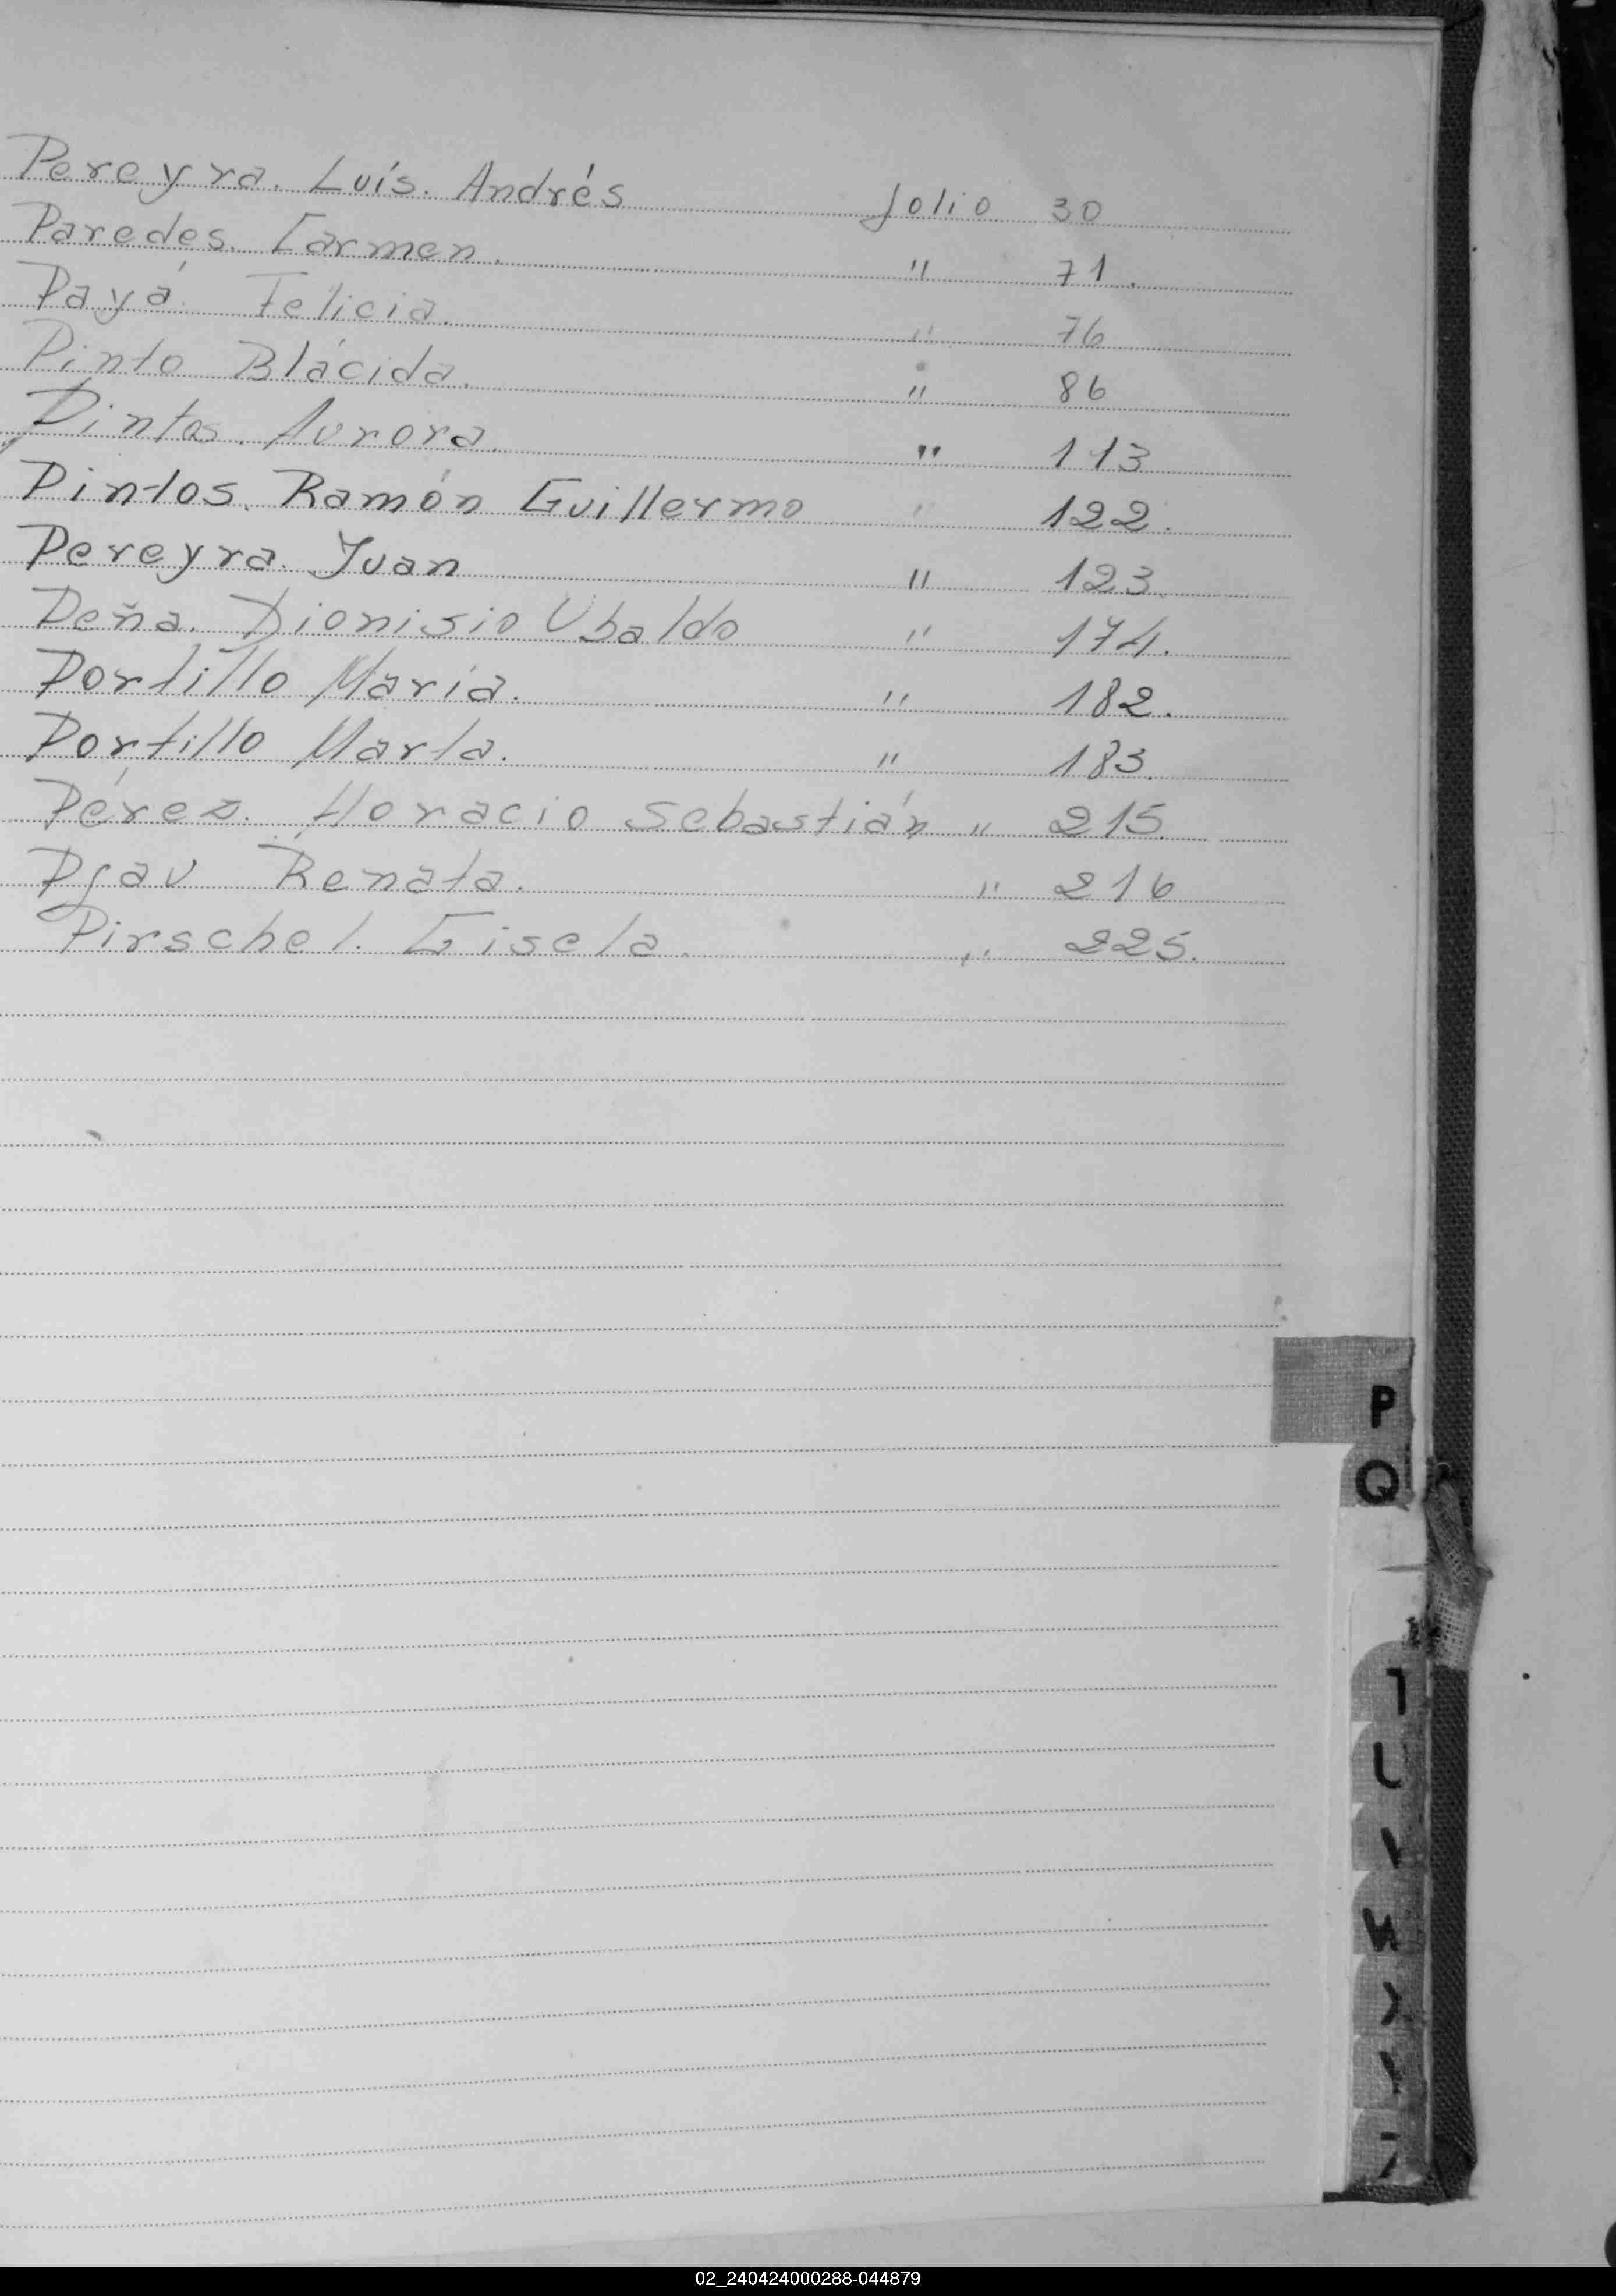 Pereyra. Luís. Andrés folio 30
Paredes. Carmen. " 71.
Payá. Felicia. " 76
Pinto Blácida. " 86
Pintos. Aurora. " 113
Pintos. Ramón Guillermo " 122.
Pereyra. Juan " 123.
Peña. Dionisio Ubaldo " 174.
Portillo María. " 182.
Portillo Marta. " 183.
Pérez. Horacio Sebastián " 215.
Renata. " 216
Pirschel. Gisela. " 225.
P
Q
02_240424000288-044879